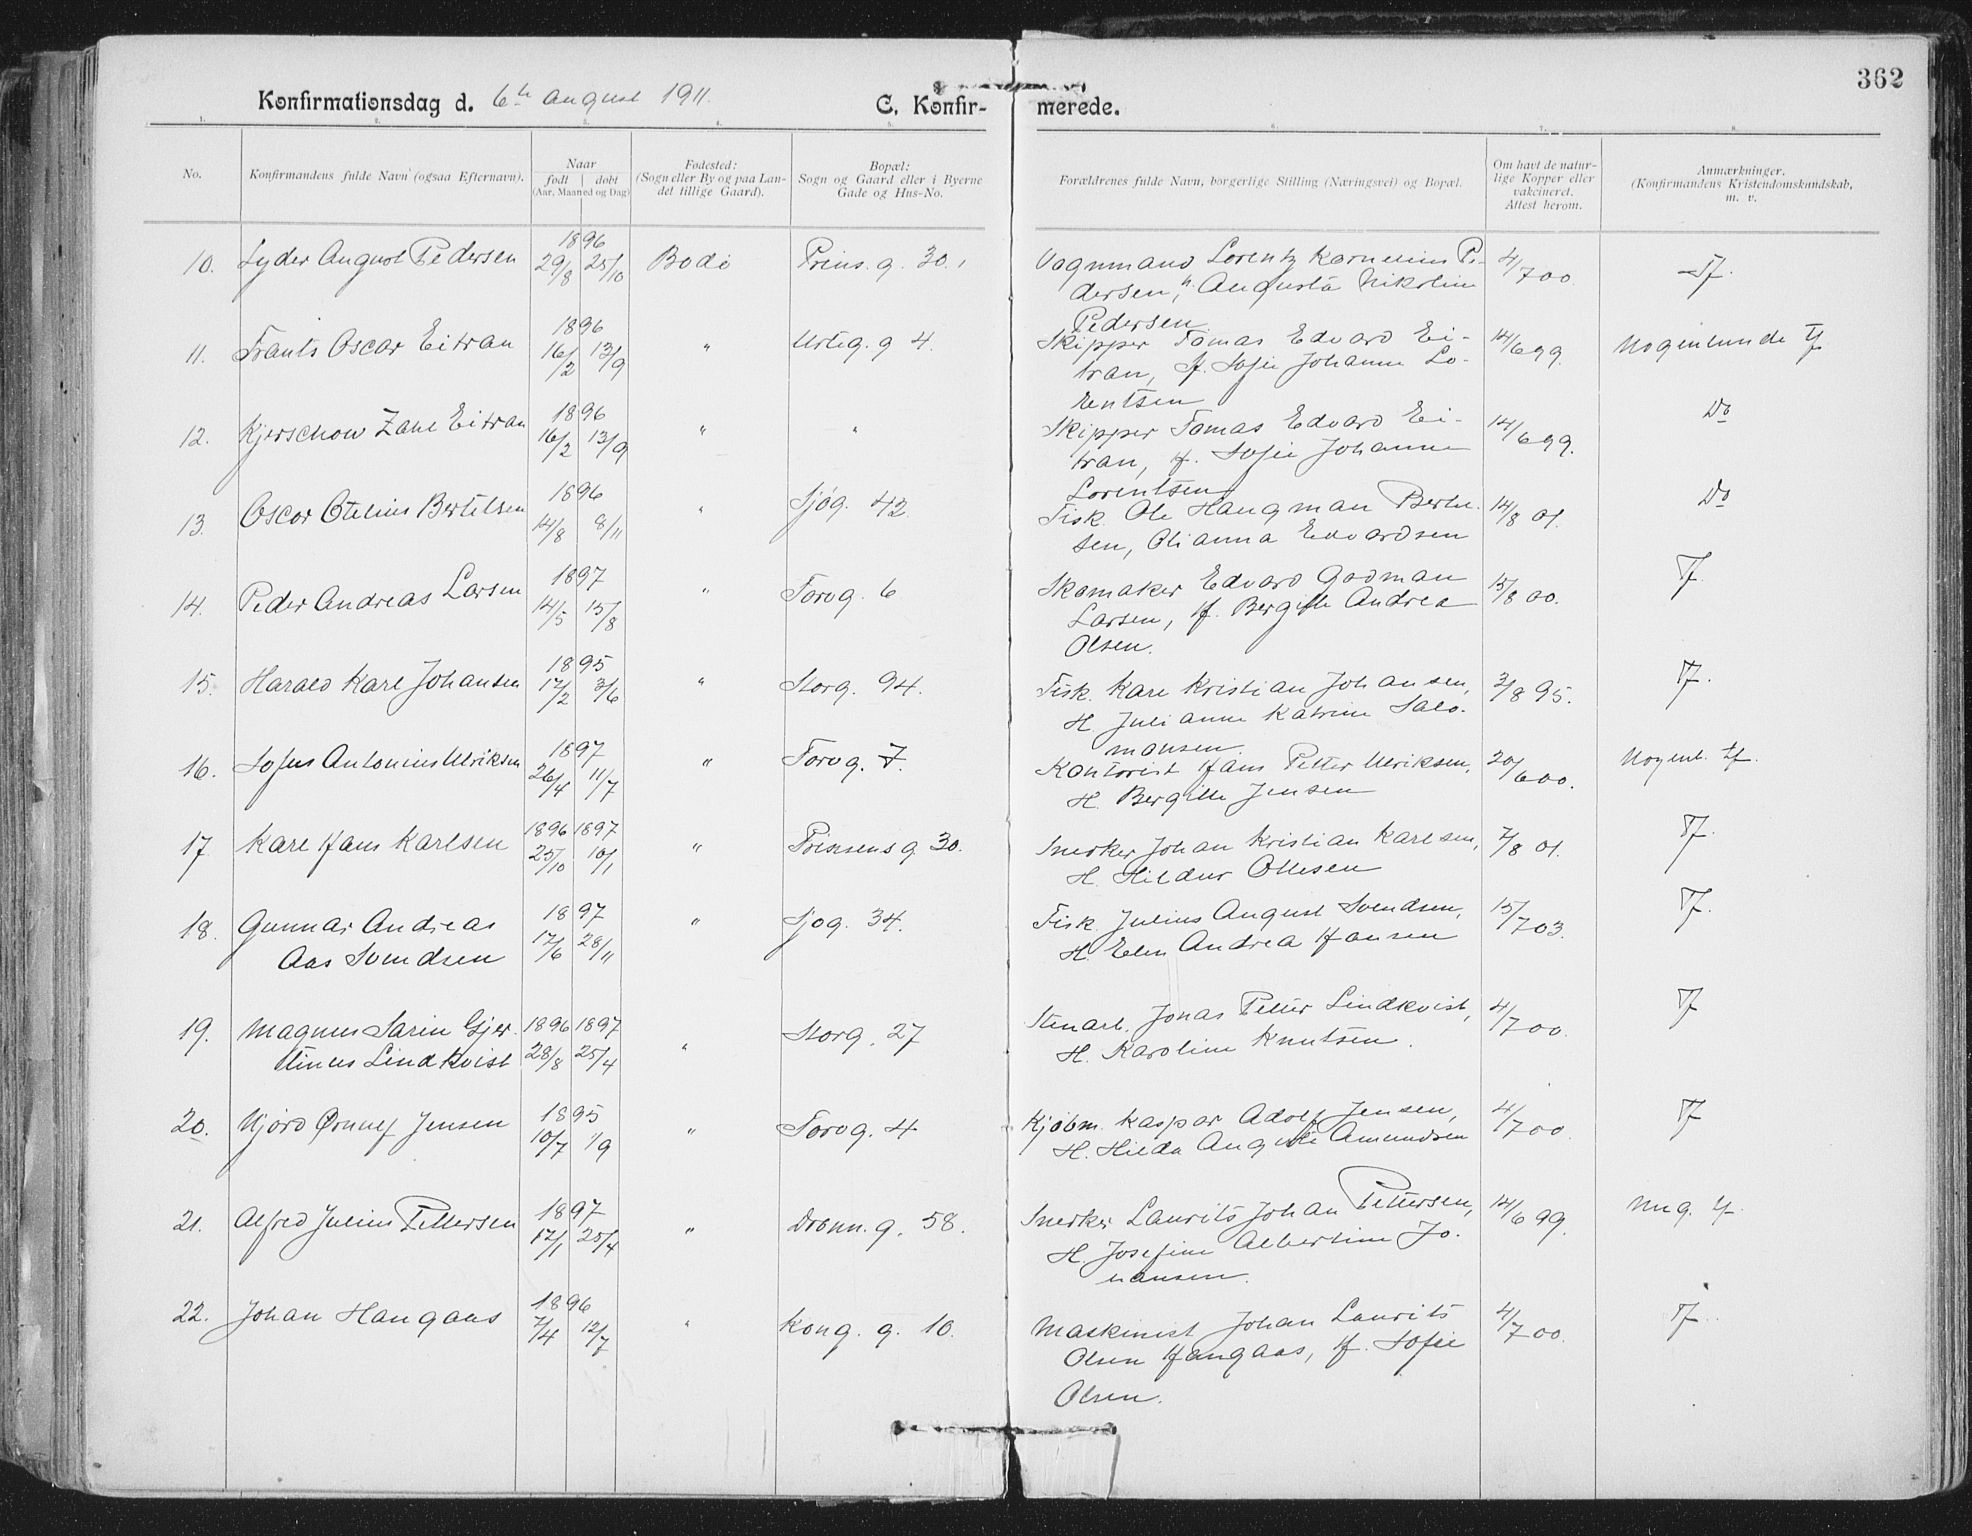 362
Konfirmationsdag d. 6te august 1911. C. Konfirmerede.
1. 2. 3. 4. 5. 6. 7. 8.
No. Konfirmandens fulde Navn (ogsaa Efternavn). Naar født døbt (Aar, Maaned og Dag) Fødested: (Sogn eller By og paa Landet tillige Gaard). Bopæl: Sogn og Gaard eller i Byerne Gade og Hus-No. Forældrenes fulde Navn, borgerlige Stilling (Næringsvei) og Bopæl. Om havt de naturlige Kopper eller vakcineret. Attest herom. Anmærkninger. (Konfirmandens Kristendomskundskab, m. v.
10. Lyder August Pedersen 1896 29/8 25/10 Bodø Prins. g. 30. Vognmand Lorentz Kornelius Pe-
dersen, Augusta Nikoline
Pedersen 4/7 00. Tf.
11. Frants Oscar Eitran 1896 16/2 13/9 " Urteg. g 4. Skipper Tomas Edvard Ei-
tran, H. Sofie Johanne Lo-
rentsen 14/6 99. Nogenlunde tf
12. Kjerschow Zahl Eitran 1896 16/2 13/9 " " Skipper Tomas Edvard Ei-
tran, H. Sofie Johanne
Lorentsen 14/6 99. Do
13. Oscar Otelius Bertelsen 1896 14/8 8/11 " Sjøg. 42. Fisk. Ole Hangman Bertel-
sen, Olianna Edvardsen 14/8 01. Do
14. Peder Andreas Larsen 1897 14/5 15/8 " Torvg. 6 Skomaker Edvard Godman
Larsen, H. Bergitte Andrea
Olsen. 15/8 00. Tf.
15. Harald Karl Johansen 1895 17/2 3/6 " Storg. 94. Fisk. Karl Kristian Johansen,
H. Julianne Katrine Salo-
monsen. 3/8 95. Tf.
16. Sofus Antonius Ulriksen 1897 26/4 11/7 " Torvg. 7. Kontorist Hans Petter Ulriksen,
H. Bergitte Jensen 20/6 00. Nogenl. tf.
17 Karl Hans Karlsen 1896 1897 25/10 10/1 " Prinsens g. 30. Snedker Johan Kristian Karlsen,
H. Hildur Ottesen 7/8 01. Tf.
18. Gunnar Andreas
Aas Svendsen 1897 17/6 28/11 " Sjøg. 34. Fisk. Julius August Svendsen,
H. Elen Andrea Hansen 15/7 03. Tf.
19. Magnus Sarin Gjer-
tinus Lindkvist 1896 1897 28/8 25/4 " Storg. 27 Stenarb. Jonas Petter Lindkvist,
H. Karoline Knutsen. 4/7 00. Tf
20. Njord Ørnulf Jensen 1895 10/7 1/9 " Torvg. 4 Kjøbm. Kaspar Adolf Jensen,
H. Hilda Auguste Amundsen 4/7 00. Tf
21. Alfred Julius Pettersen 1897 17/1 25/4 " Dronn. g. 58. Snedker Laurits Johan Pettersen,
H. Josefine Albertine Jo-
hansen. 14/6 99. Nug. tf.
22. Johan Haugaas 1896 7/4 12/7 " Kong. g. 10. Maskinist Johan Laurits
Olsen Haugaas, H. Sofie
Olsen. 4/7 00. Tf.